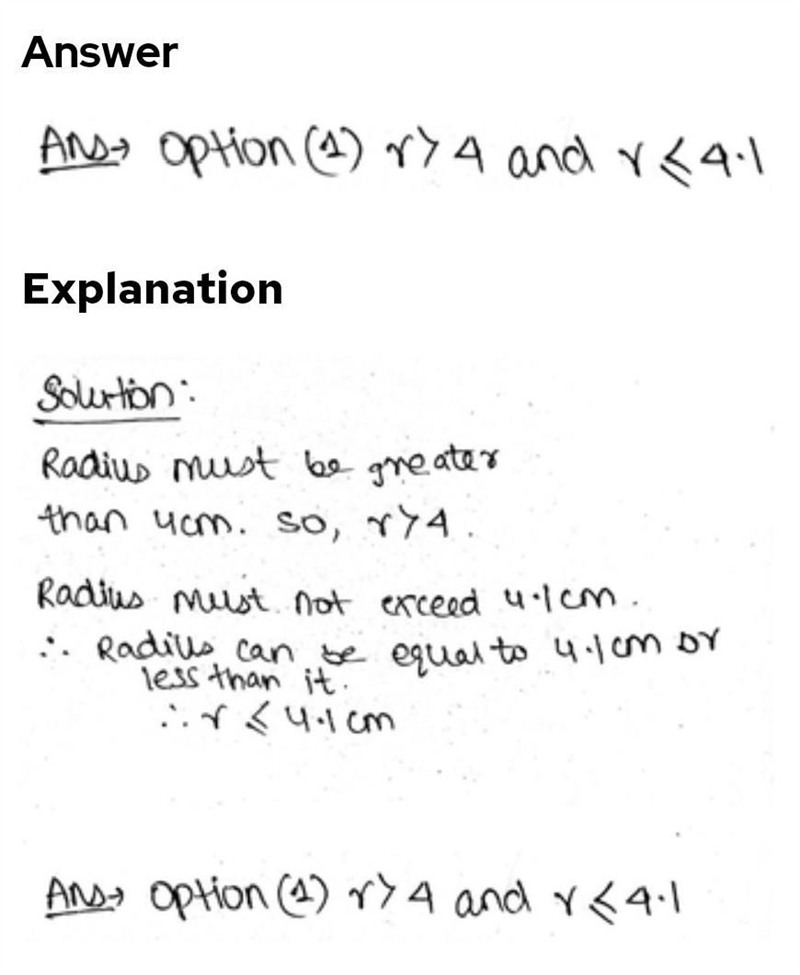 Answer
Ans→ Option (1) r > 4 and r ≤ 4.1
Explanation
Solution:
Radius must be greater
than 4cm. so, r > 4.
Radius must not exceed 4.1cm.
∴ Radius can be equal to 4.1cm or
less than it.
∴ r ≤ 4.1 cm
Ans→ Option (1) r > 4 and r ≤ 4.1